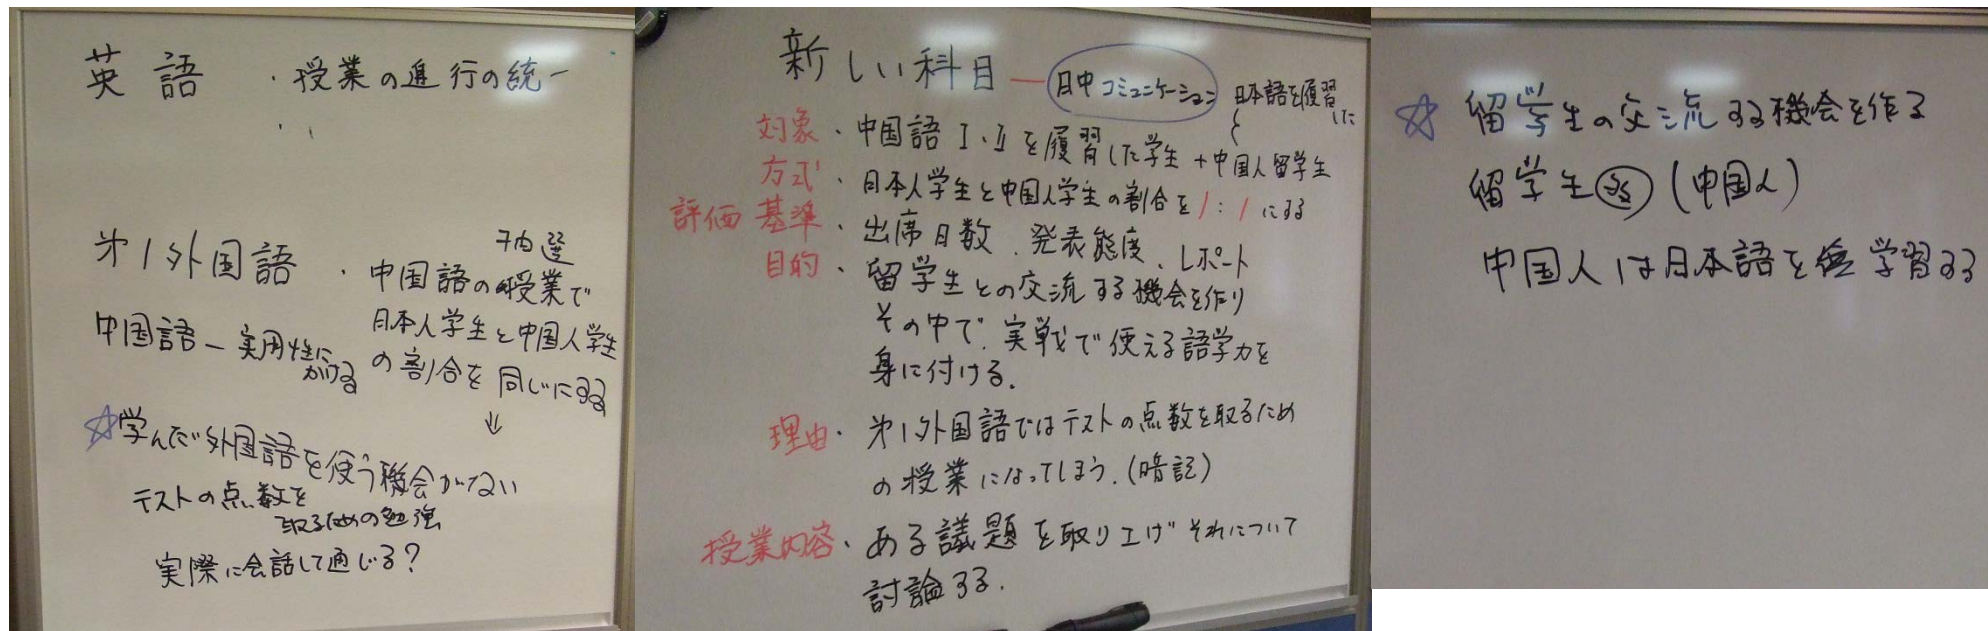 英語 ・授業の進行の統一
第1外国語
抽選
・中国語の授業で
日本人学生と中国人学生
の割合を同じにする
中国語―実用性に
かける
☆学んだ外国語を使う機会がない
テストの点数を
取るための勉強
実際に会話して通じる?
新しい科目―日中コミュニケーション
日本語を履修
した
対象・中国語Ⅰ・Ⅱを履修した学生+中国人留学生
方式・日本人学生と中国人学生の割合を1:1にする
評価基準・出席日数、発表態度、レポート
目的・留学生との交流する機会を作り
その中で、実戦で使える語学力を
身に付ける。
理由・第1外国語ではテストの点数を取るため
の授業になってしまう。(暗記)
授業内容・ある議題を取り上げそれについて
討論する。
☆留学生の交流する機会を作る
留学生 多 (中国人)
中国人は日本語を学習する